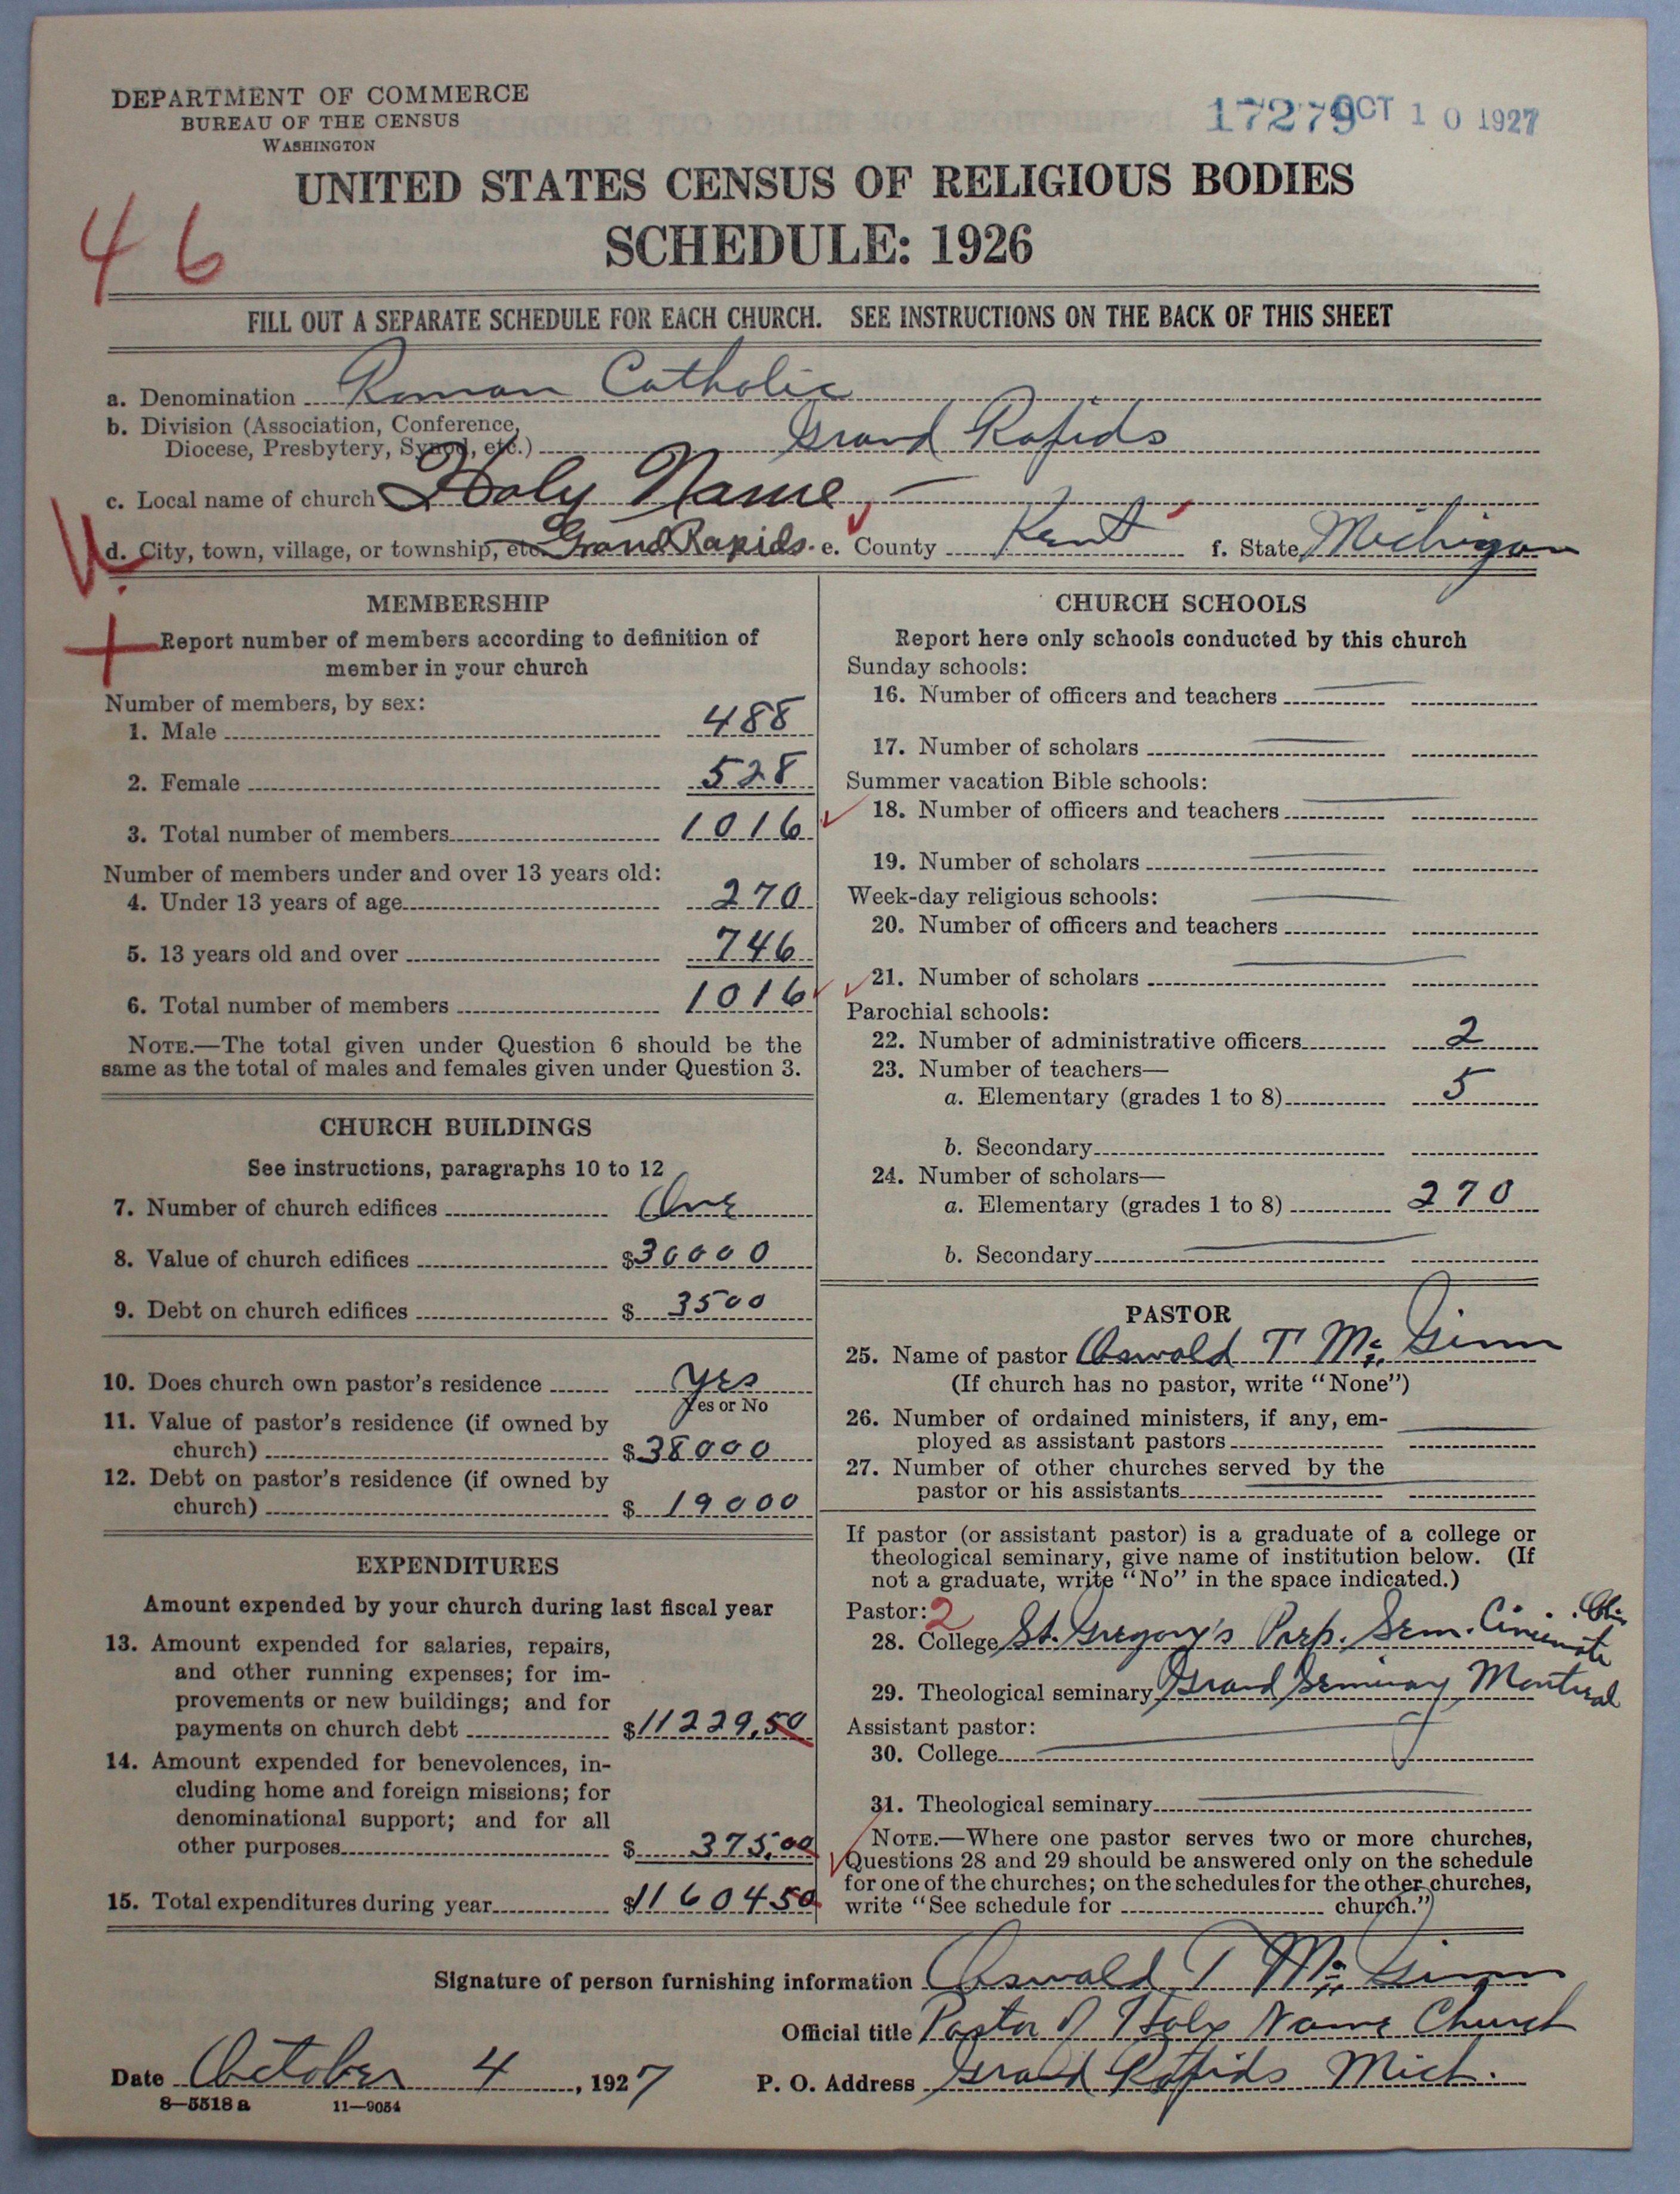 DEPARTMENT OF COMMERCE
BUREAU OF THE CENSUS
WASHINGTON
17279 OCT 10 1927
UNITED STATES CENSUS OF RELIGIOUS BODIES
SCHEDULE: 1926
46
FILL OUT A SEPARATE SCHEDULE FOR EACH CHURCH. SEE INSTRUCTIONS ON THE BACK OF THIS SHEET
a. Denomination Roman Catholic
b. Division (Association, Conference,
Diocese, Presbytery, Synod, etc.) Grand Rapids
c. Local name of church Holy Name
d. City, town, village, or township, etc. Grand Rapids. e. County Kent f. State Michigan
MEMBERSHIP
Report number of members according to definition of
member in your church
Number of members, by sex:
1. Male 488
2. Female 528
3. Total number of members 1016
Number of members under and over 13 years old:
4. Under 13 years of age 270
5. 13 years old and over 746
6. Total number of members 1016
NOTE.—The total given under Question 6 should be the
same as the total of males and females given under Question 3.
CHURCH BUILDINGS
See instructions, paragraphs 10 to 12
7. Number of church edifices One
8. Value of church edifices $30000
9. Debt on church edifices $3500
10. Does church own pastor's residence yes
Yes or No
11. Value of pastor's residence (if owned by
church) $38000
12. Debt on pastor's residence (if owned by
church) $19000
EXPENDITURES
Amount expended by your church during last fiscal year
13. Amount expended for salaries, repairs,
and other running expenses; for im-
provements or new buildings; and for
payments on church debt $11229.50
14. Amount expended for benevolences, in-
cluding home and foreign missions; for
denominational support; and for all
other purposes $375.00
15. Total expenditures during year $1160450
CHURCH SCHOOLS
Report here only schools conducted by this church
Sunday schools:
16. Number of officers and teachers
17. Number of scholars
Summer vacation Bible schools:
18. Number of officers and teachers
19. Number of scholars
Week-day religious schools:
20. Number of officers and teachers
21. Number of scholars
Parochial schools:
22. Number of administrative officers 2
23. Number of teachers—
a. Elementary (grades 1 to 8) 5
b. Secondary
24. Number of scholars—
a. Elementary (grades 1 to 8) 270
b. Secondary
PASTOR
25. Name of pastor Oswald T Mc Ginn
(If church has no pastor, write "None")
26. Number of ordained ministers, if any, em-
ployed as assistant pastors
27. Number of other churches served by the
pastor or his assistants
If pastor (or assistant pastor) is a graduate of a college or
theological seminary, give name of institution below. (If
not a graduate, write "No" in the space indicated.)
Pastor: 2
28. College St. Gregory's Prep. Sem. Cincinnati Ohio
29. Theological seminary Grand Seminary Montreal
Assistant pastor:
30. College
31. Theological seminary
NOTE.—Where one pastor serves two or more churches,
Questions 28 and 29 should be answered only on the schedule
for one of the churches; on the schedules for the other churches,
write "See schedule for church.")
Signature of person furnishing information Oswald T Mc Ginn
Official title Pastor of Holy Name Church
Date October 4, 1927 P. O. Address Grand Rapids Mich.
8—5518 a 11—9054